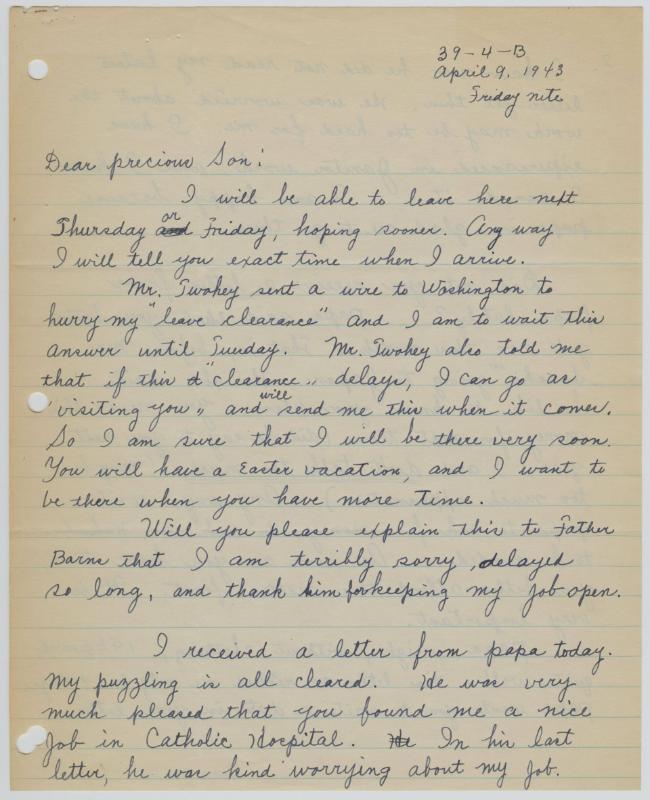 39-4-B
April 9, 1943
Friday nite
Dear precious Son!
I will be able to leave here next
Thursday and or Friday, hoping sooner. Any way
I will tell you exact time when I arrive.
Mr. Twohey sent a wire to Washington to
hurry my "leave clearance" and I am to wait this
answer until Tuesday. Mr. Twohey also told me
that if this "clearance" delays, I can go as
"visiting you" and will send me this when it comes.
So I am sure that I will be there very soon.
You will have a Easter vacation, and I want to
be there when you have more time.
Will you please explain this to Father
Barns that I am terribly sorry, delayed
so long, and thank him for keeping my job open.
I received a letter from papa today.
My puzzling is all cleared. He was very
much pleased that you found me a nice
Job in Catholic Hospital. He In his last
letter, he was kind worrying about my Job.